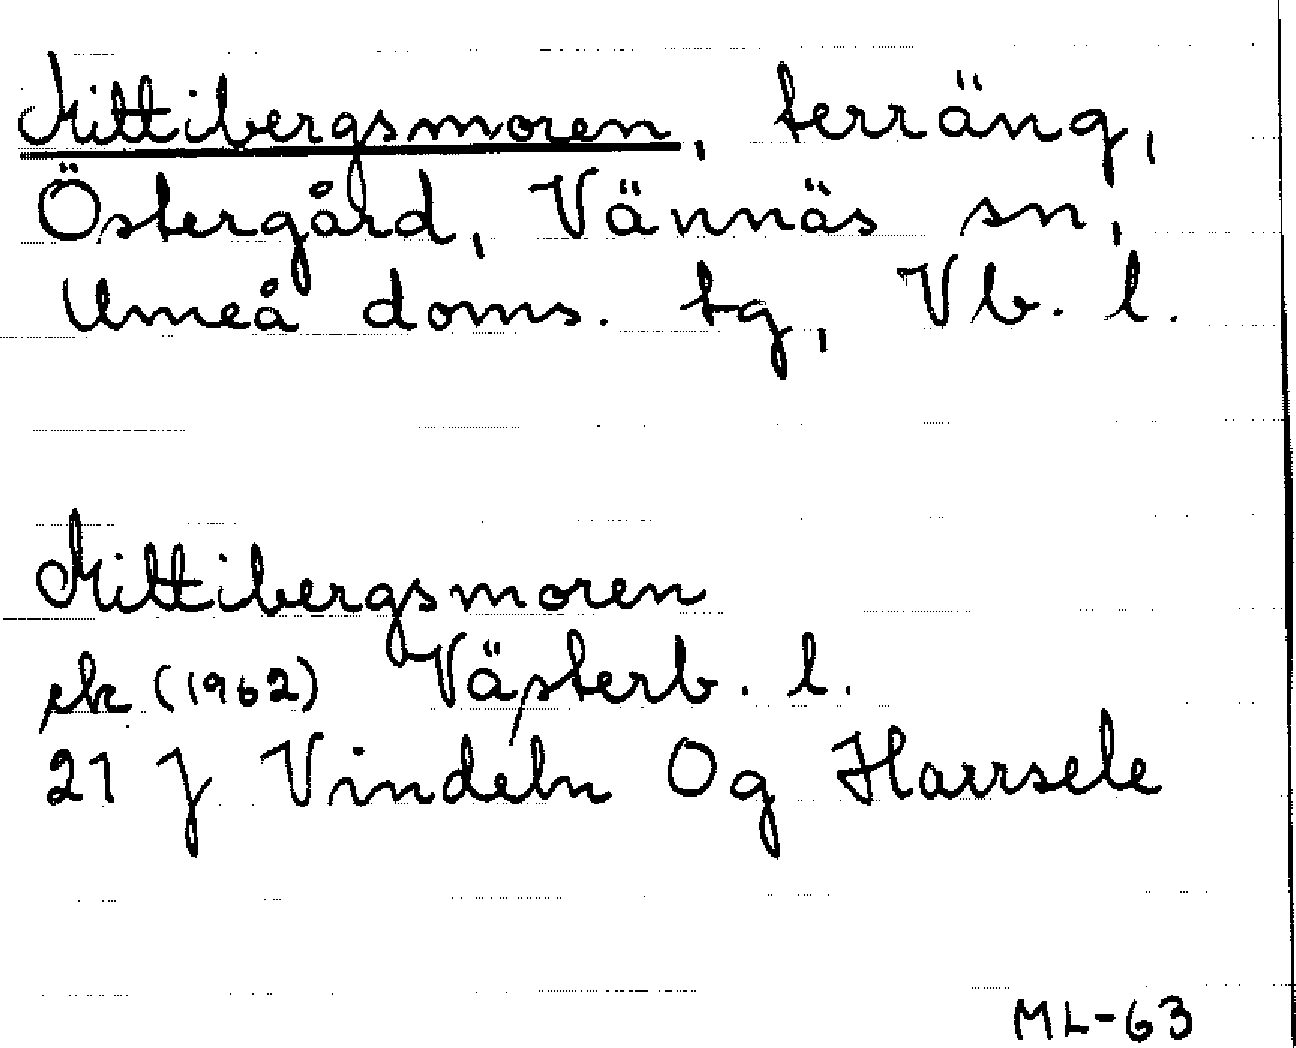 Mittibergsmoren, terräng,
Östergård, Vännäs sn,
Umeå doms. tg, Vb. l.
Mittibergsmoren
ek (1962) Västerb. l.
21 J Vindeln Og Harrsele
ML-63